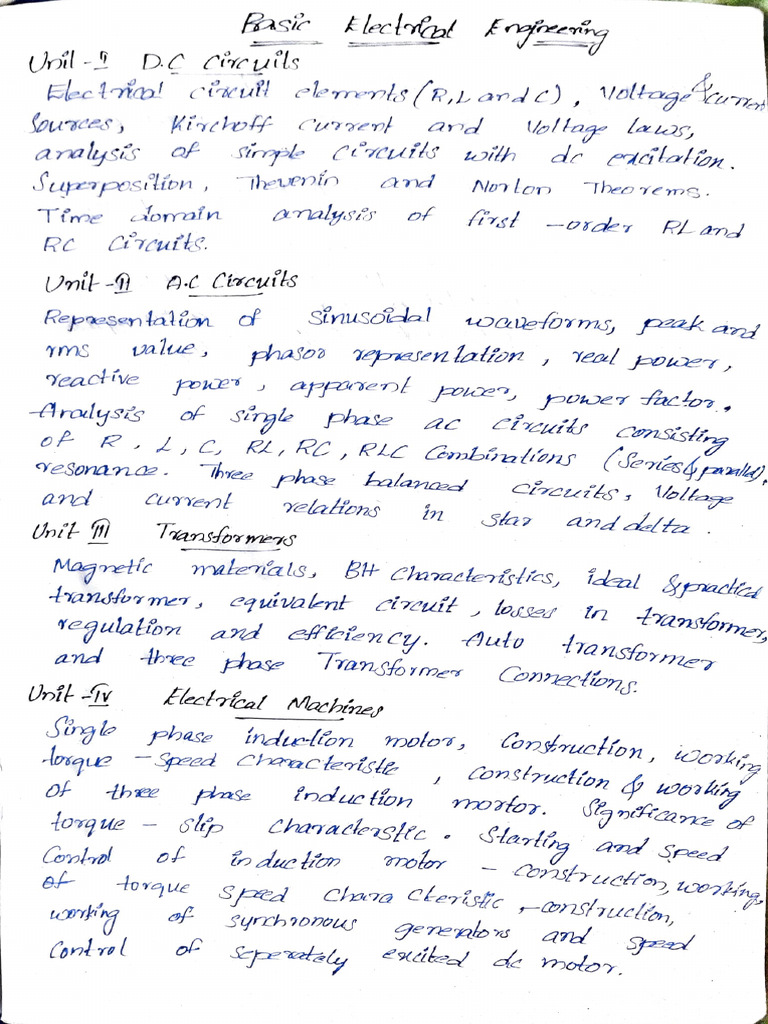 Basic Electrical Engineering
Unit - I D.C Circuits
Electrical circuit elements (R, L and C), Voltage & current
Sources, Kirchoff current and Voltage laws,
analysis of simple circuits with dc excitation.
Superposition, Thevenin and Norton Theorems.
Time domain analysis of first - order RL and
RC Circuits.
Unit - II A.C Circuits
Representation of sinusoidal waveforms, peak and
rms value, phasor representation, real power,
reactive power, apparent power, power factor.
Analysis of single phase ac circuits consisting
of R, L, C, RL, RC, RLC Combinations (Series & parallel),
resonance. Three phase balanced circuits, Voltage
and current relations in star and delta.
Unit III Transformers
Magnetic materials, BH Characteristics, ideal & practical
transformer, equivalent circuit, losses in transformer,
regulation and efficiency. Auto transformer
and three phase Transformer Connections.
Unit - IV Electrical Machines
Single phase induction motor, Construction, working
torque - Speed Characteristic, Construction & working
of three phase induction mortor. Significance of
torque - slip characterstic. Starting and speed
Control of induction motor - construction, working,
of torque speed charackteristic - construction,
working of synchronous generators and speed
Control of seperately excited dc motor.